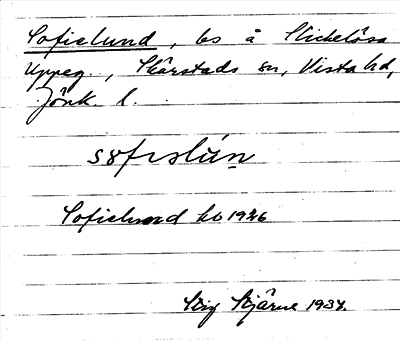 Sofielund, bs å Stickelösa
Uppeg., Skärstads sn, Vista hd,
Jönk. l.
sofislún
Sofielund kb 1926
Stig Stjärne 1937.